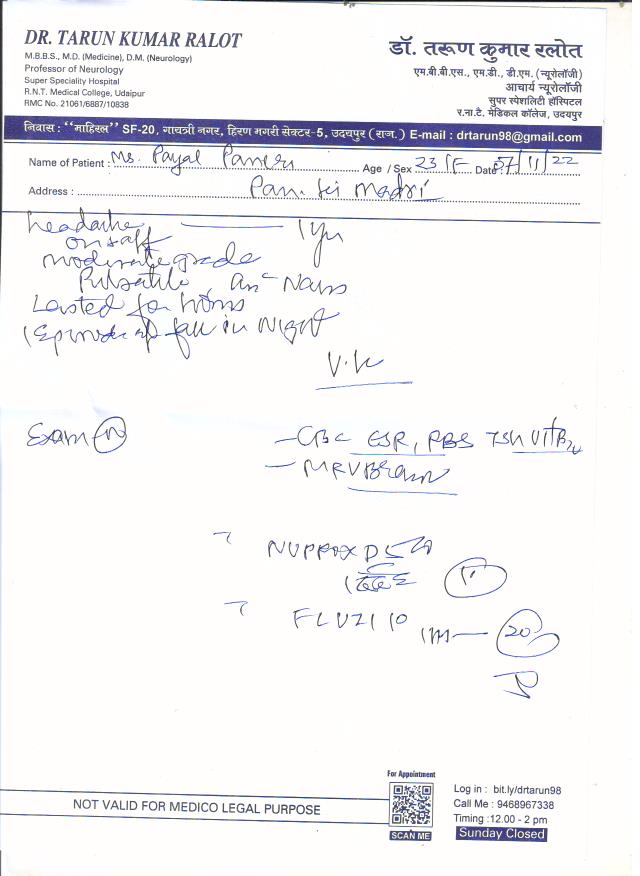 DR. TARUN KUMAR RALOT
M.B.B.S., M.D. (Medicine), D.M. (Neurology)
Professor of Neurology
Super Speciality Hospital
R.N.T. Medical College, Udaipur
RMC No. 21061/6887/10838
डॉ. तरूण कुमार रलोत
एम.बी.बी.एस., एम.डी., डी.एम. (न्यूरोलॉजी)
आचार्य न्यूरोलॉजी
सुपर स्पेशलिटी हॉस्पिटल
र.ना.टै. मेडिकल कॉलेज, उदयपुर
निवास : "माहिरल" SF-20, गायत्री नगर, हिरण मगरी सेक्टर-5, उदयपुर (राज.) E-mail : drtarun98@gmail.com
Name of Patient : Ms. Payal Age / Sex 23 / F Date : 07/11/22
Address : Madri
headache 1 yr
on & off
moderate grade
Pulsatile
Lasted for
1 Episode of fall in Night
Exam (N)
- CBC ESR, RBS TSH Vit B12
- MRV Brain
FLUZI 10
20
NOT VALID FOR MEDICO LEGAL PURPOSE
For Appointment
SCAN ME
Log in : bit.ly/drtarun98
Call Me : 9468967338
Timing :12.00 - 2 pm
Sunday Closed